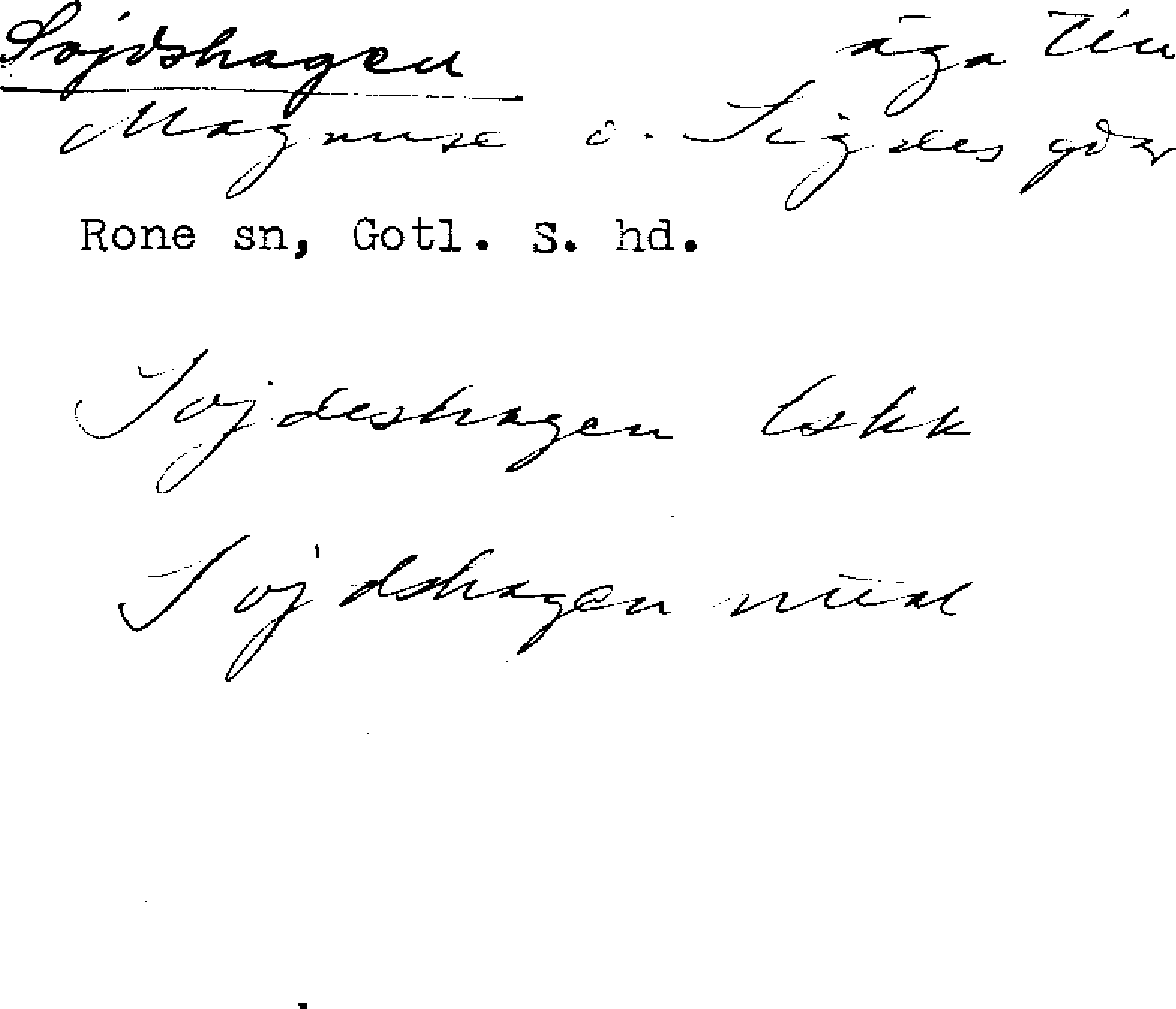 Sojdshagen äga till
Magnuse o. Sigdes gdr
Rone sn, Gotl. S. hd.
Sojdeshagen lskk
Sojdshagen